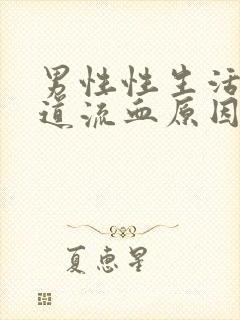 男性性生活
道流血原因
夏惠星